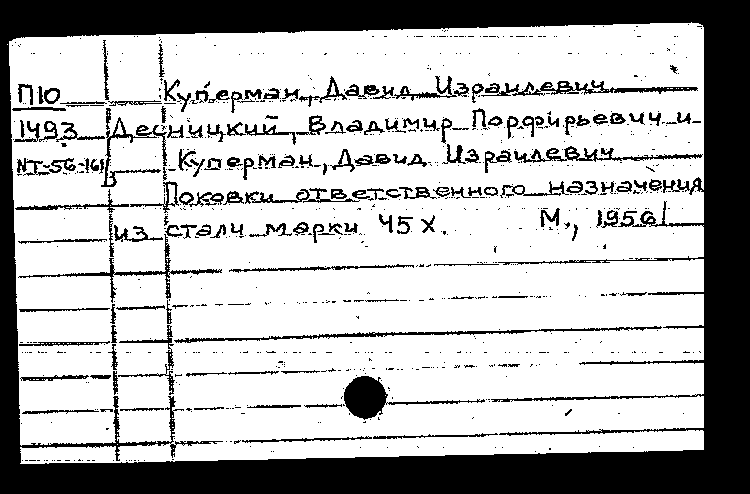 П10 Куперман, Давид Израилевич
1493 Десницкий, Владимир Порфирьевич и
NT-56-161/3 Куперман, Давид Израилевич
Поковки ответственного назначения
из стали марки 45 х. М., 1956